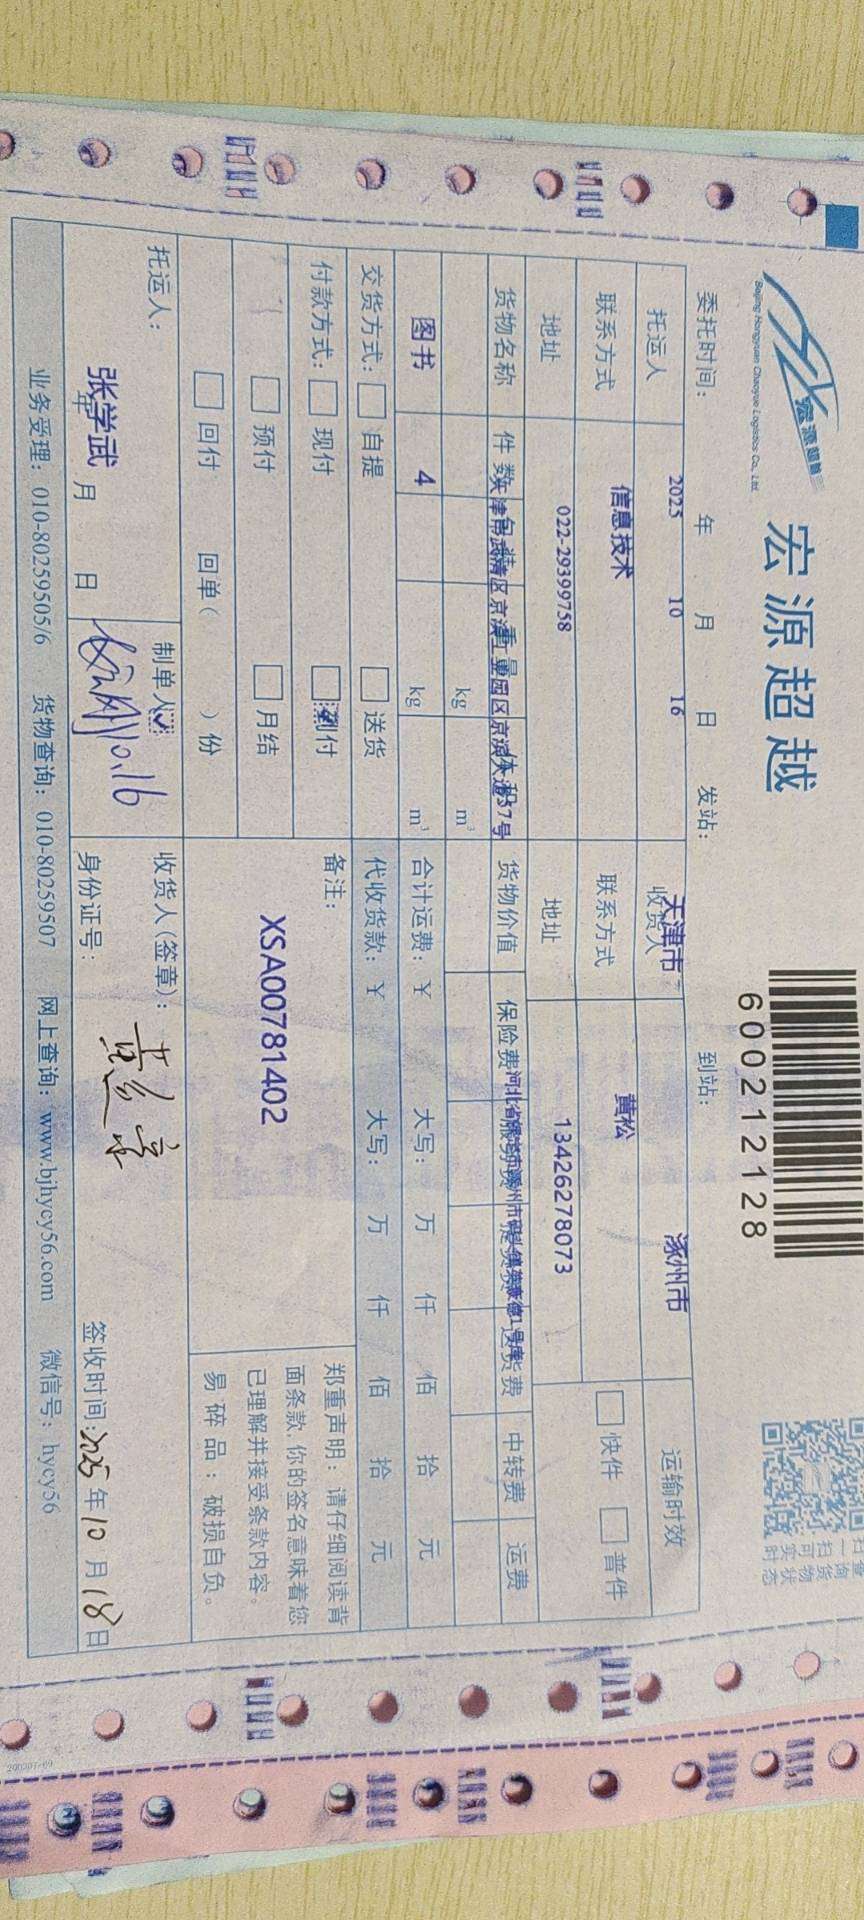 宏源超越
Beijing Hongyuan Chaoyue Logistics Co., Ltd
宏源超越
600212128
委托时间: 2025 年 10 月 16 日 发站: 天津市 到站: 涿州市
托运人 信息技术 收货人 黄松 运输时效
联系方式 022-29399758 联系方式 13426278073 快件 普件
地址 天津市武清区京滨工业园区京滨大道37号 地址 河北省
货物名称 件数 包装 重量 体积 货物价值 保险费 送货费 中转费 运费
kg m³
图书 4 kg m³ 合计运费: ¥ 大写: 万 仟 佰 拾 元
交货方式: 自提 送货 代收货款: ¥ 大写: 万 仟 佰 拾 元
付款方式: 现付 到付 备注:
预付 月结 XSA00781402
回付 回单( )份
郑重声明: 请仔细阅读背
面条款, 你的签名意味着您
已理解并接受条款内容。
易碎品: 破损自负。
托运人: 张学武 年 月 日
制单人: 10.16
收货人(签章):
身份证号: 签收时间: 2025 年 10 月 18 日
业务受理: 010-80259505/6 货物查询: 010-80259507 网上查询: www.bjhycy56.com 微信号: hycy56